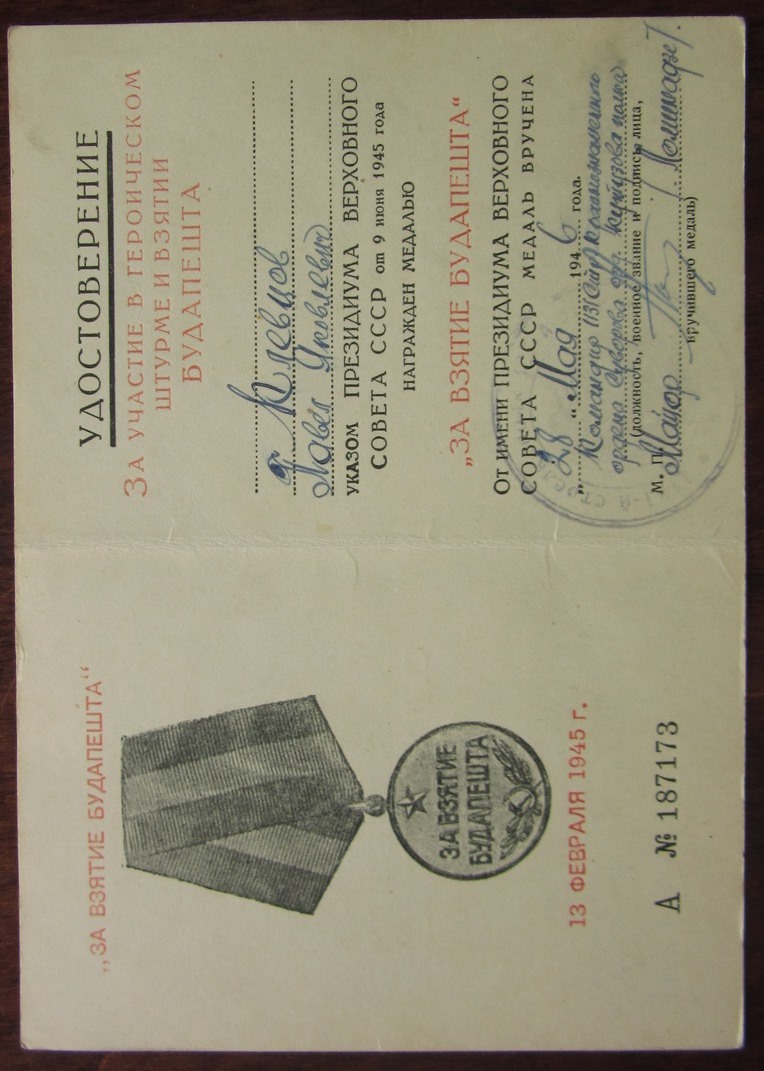 „ЗА ВЗЯТИЕ БУДАПЕШТА“
ЗА ВЗЯТИЕ
БУДАПЕШТА
13 ФЕВРАЛЯ 1945 г.
А № 187173
УДОСТОВЕРЕНИЕ
ЗА УЧАСТИЕ В ГЕРОИЧЕСКОМ
ШТУРМЕ И ВЗЯТИИ
БУДАПЕШТА
Клевцов
Павел Яковлевич
УКАЗОМ ПРЕЗИДИУМА ВЕРХОВНОГО
СОВЕТА СССР от 9 июня 1945 года
НАГРАЖДЕН МЕДАЛЬЮ
„ЗА ВЗЯТИЕ БУДАПЕШТА“
ОТ ИМЕНИ ПРЕЗИДИУМА ВЕРХОВНОГО
СОВЕТА СССР МЕДАЛЬ ВРУЧЕНА
„28“ Мая 1946 года.
Командир 113 Краснознаменного
ордена Суворова орд. Кутузова полка
(должность, военное звание и подпись лица,
М. П. Майор
вручившего медаль)